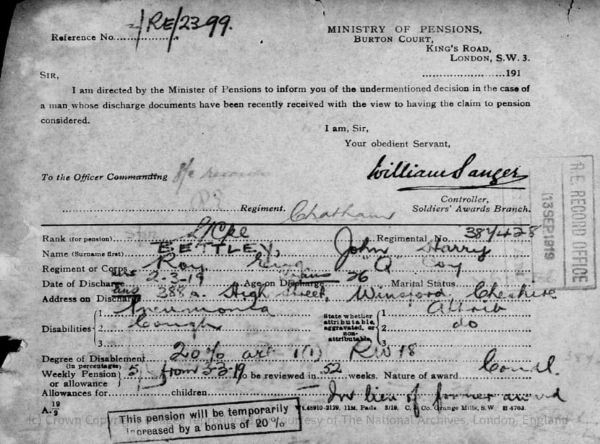 Reference No. /RE/2399.
MINISTRY OF PENSIONS,
BURTON COURT,
KING'S ROAD,
LONDON, S.W. 3.
191
SIR,
I am directed by the Minister of Pensions to inform you of the undermentioned decision in the case of
a man whose discharge documents have been recently received with the view to having the claim to pension
considered.
I am, Sir,
Your obedient Servant,
William Sanger
To the Officer Commanding i/c records
Controller,
Soldiers' Awards Branch.
Regiment. Chatham
R.E. RECORD OFFICE
13 SEP 1919
Rank (for pension) L/Cpl Regimental No. 387428
Name (Surname first) BETTLEY, John Harry
Regiment or Corps Roy Eng "Q" Coy
Date of Discharge 2-3-19 Age on Discharge 26 Marital Status
Address on Discharge 388a High Street, Winsford, Cheshire
Disabilities
1 Pneumonia
2 Cough
3
State whether attributable, aggravated, or non-attributable.
1 Attrib
2 do
3
Degree of Disablement (in percentages) 20% art 1(1) RW 18
Weekly Pension or allowance 5/ from 3-3-19 to be reviewed in 52 weeks. Nature of award Condl.
Allowances for children. In lieu of former award
This pension will be temporarily
increased by a bonus of 20%
(c) Crown Copyright courtesy of The National Archives, London, England